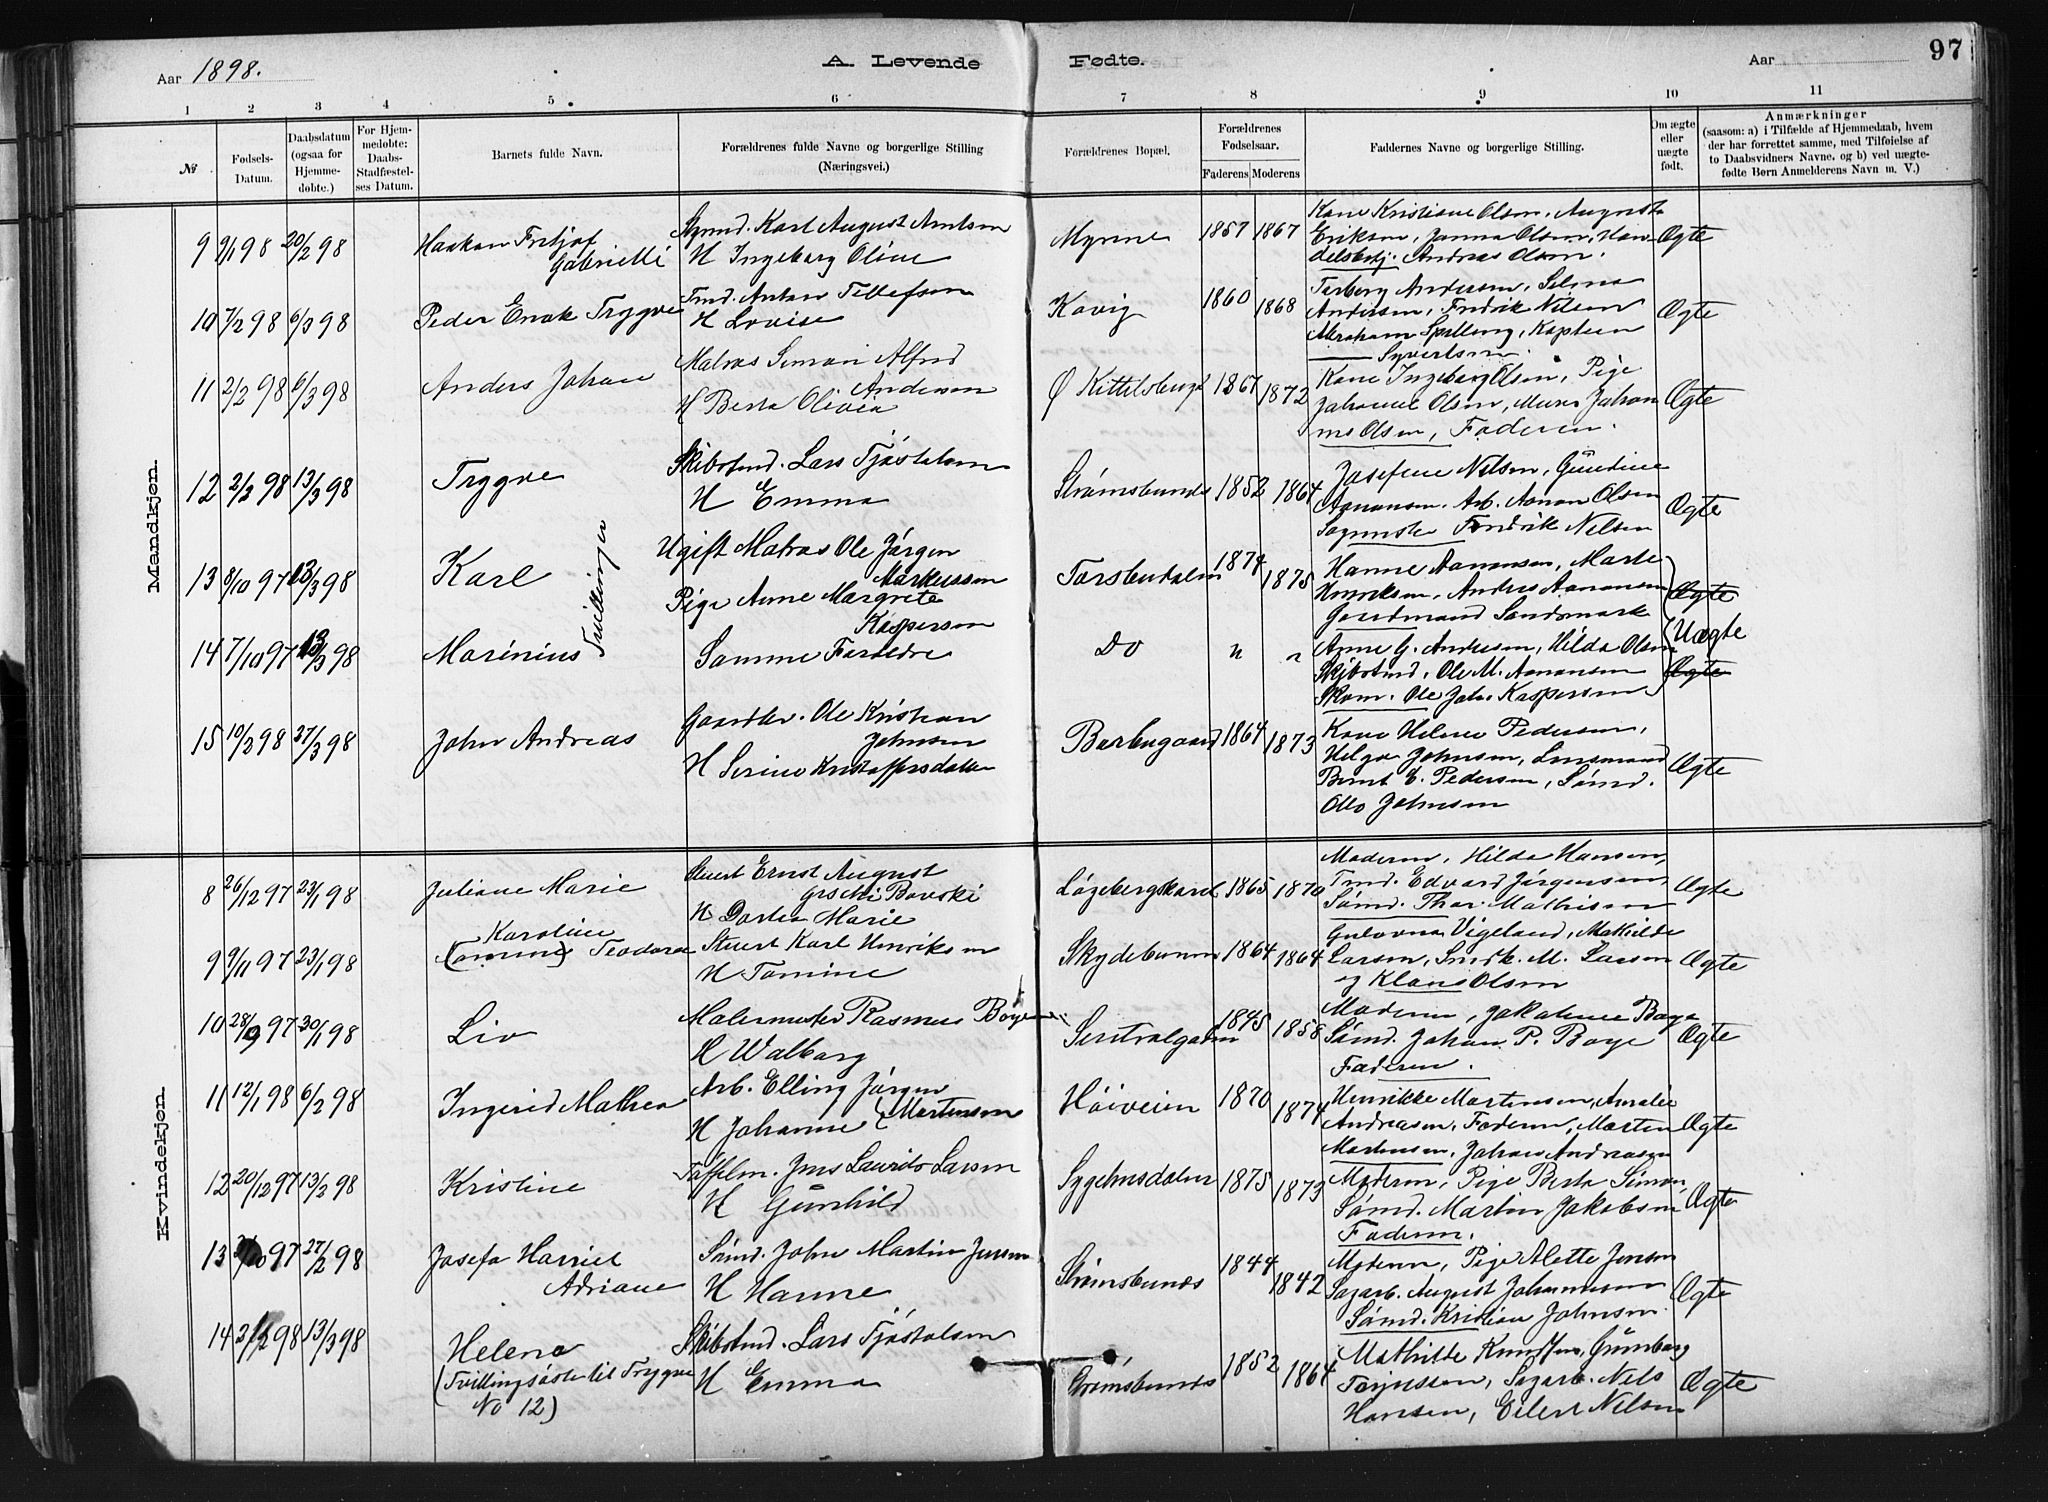 Aar 1898.
A. Levende Fødte.
Aar
97
1 2 3 4 5 6 7 8 9 10 11
№
Fødsels-Datum.
Daabsdatum (ogsaa for Hjemmedøbte.)
For Hjemmedøbte: Daabs-Stadfæstelses Datum.
Barnets fulde Navn.
Forældrenes fulde Navne og borgerlige Stilling (Næringsvei.)
Forældrenes Bopæl.
Forældrenes Fødselsaar.
Faderens Moderens
Faddernes Navne og borgerlige Stilling.
Om ægte eller uægte født.
Anmærkninger
(saasom: a) i Tilfælde af Hjemmedaab, hvem
der har forrettet samme, med Tilføielse af
to Daabsvidners Navne, og b) ved uægte-
fødte Børn Anmelderens Navn m. V.)
Mandkjøn.
9 9/1 98 20/2 98 Haakan Fritjof Gabrielli
Karl August Arntsen
H Ingeborg Oline
Myrene 1857 1867
Kone Kristiane Olsen, Augusta
Eriksen, Janna Olsen, Han-
delsbetj. Andreas Olsen.
Ægte
10 7/2 98 6/3 98 Peder Enok Trygve
Tmd. Anton Tellefsen
H Lovise
Kovig 1860 1868
Torborg Andersen, Selma
Andersen, Fredrik Nilsen
Abraham Spilling, Kaptein
Syvertsen.
Ægte
11 2/2 98 6/3 98 Anders Johan
Matros Simon Alfred
Andersen
H Berta Olivia
Ø Kittelsbugt 1867 1872
Kone Ingeborg Olsen, Pige
Johanne Olsen, Murer Johan
nes Olsen, Faderen.
Ægte
12 2/3 98 13/3 98 Trygve
Skibstmd. Lars Tjøstolsen
H Emma
Strømsbunes 1852 1864
Josefine Nilsen, Gundine
Aanonsen, Arb. Aanon Olsen
Fredrik Nelsen
Ægte
13 8/10 97 13/3 98 Karl
Tvillinger
Ugift Matros Ole Jørgen
Markussen
Pige Anne Margrete
Kaspersen
Torsbudalen 1874 1875
Hanne Aanonsen, Marte
Henriksen, Andreas Aanonsen
Gaardmand Sandmark
Ægte
14 7/10 97 13/3 98 Marinius
Samme Forældre
Do " "
Anne G. Andersen, Hilda Olsen
Skibstmd. Ole M. Aanonsen
Skom. Ole Joh. Kaspersen
Uægte
Ægte
15 10/2 98 27/3 98 John Andreas
Gaardbr. Ole Kristian
Johnsen
H Serine Kristoffersdatter
Barbugaard 1864 1873
Kone Helene Pedersen,
Helga Johnsen, Lensmand
Bernt E. Pedersen, Sømd.
Olto Johnsen
Ægte
Kvindekjøn.
8 26/12 97 23/1 98 Juliane Marie
Stuert Ernst August
Bovski
H Dortea Marie
Løgebergskaret 1865 1870
Moderen, Hilda Hansen,
Tmd. Edvard Jørgensen,
Sømd. Thor. Mathisen
Ægte
9 9/11 97 23/1 98 Karoline
Teodora
Stuert Karl Henriksen
H Tomine
Skydebanen 1864 1864
Gulovna Vigeland, Mathilde
Larsen, Smdk. M. Larsen
og Klaus Olsen
Ægte
10 28/9 97 30/1 98 Liv
Malermester Rasmus Boye
H Walborg
Sentralgaden 1845 1858
Moderen, Jakobine Boye
Sømd. Johan P. Boye
Faderen.
Ægte
11 12/1 98 6/2 98 Ingerid Mathea
Arb. Elling Jørgen
Mortensen
H Johanne
Høiveien 1870 1874
Henrikke Mortensen, Amalie
Andreasen, Faderen, Morten
Mortensen, Johan Andreasen
Ægte
12 20/12 97 13/2 98 Kristine
Jens Laurits Larsen
H Gunhild
Sygehusdalen 1875 1873
Moderen, Pige Berta Simon,
Sømd. Martin Jakobsen
Faderen.
Ægte
13 /10 97 27/2 98 Josefa Harriet
Adriane
Sømd. John Martin Jensen
H Hanne
Strømsbunes 1844 1842
Moderen, Pige Alette Jenson
Sagarb. August Johannesen
Sømd. Kristian Johnsen.
Ægte
14 2/3 98 13/3 98 Helene
(Tvillingsøster til Trygve
No 12)
Skibstmd. Lars Tjøstolsen
H Emma
Strømsbunes 1852 1864
Mathilde Knudsen, Gunborg
Terjussen, Sagarb. Nils
Hansen, Eilert Nelsen
Ægte